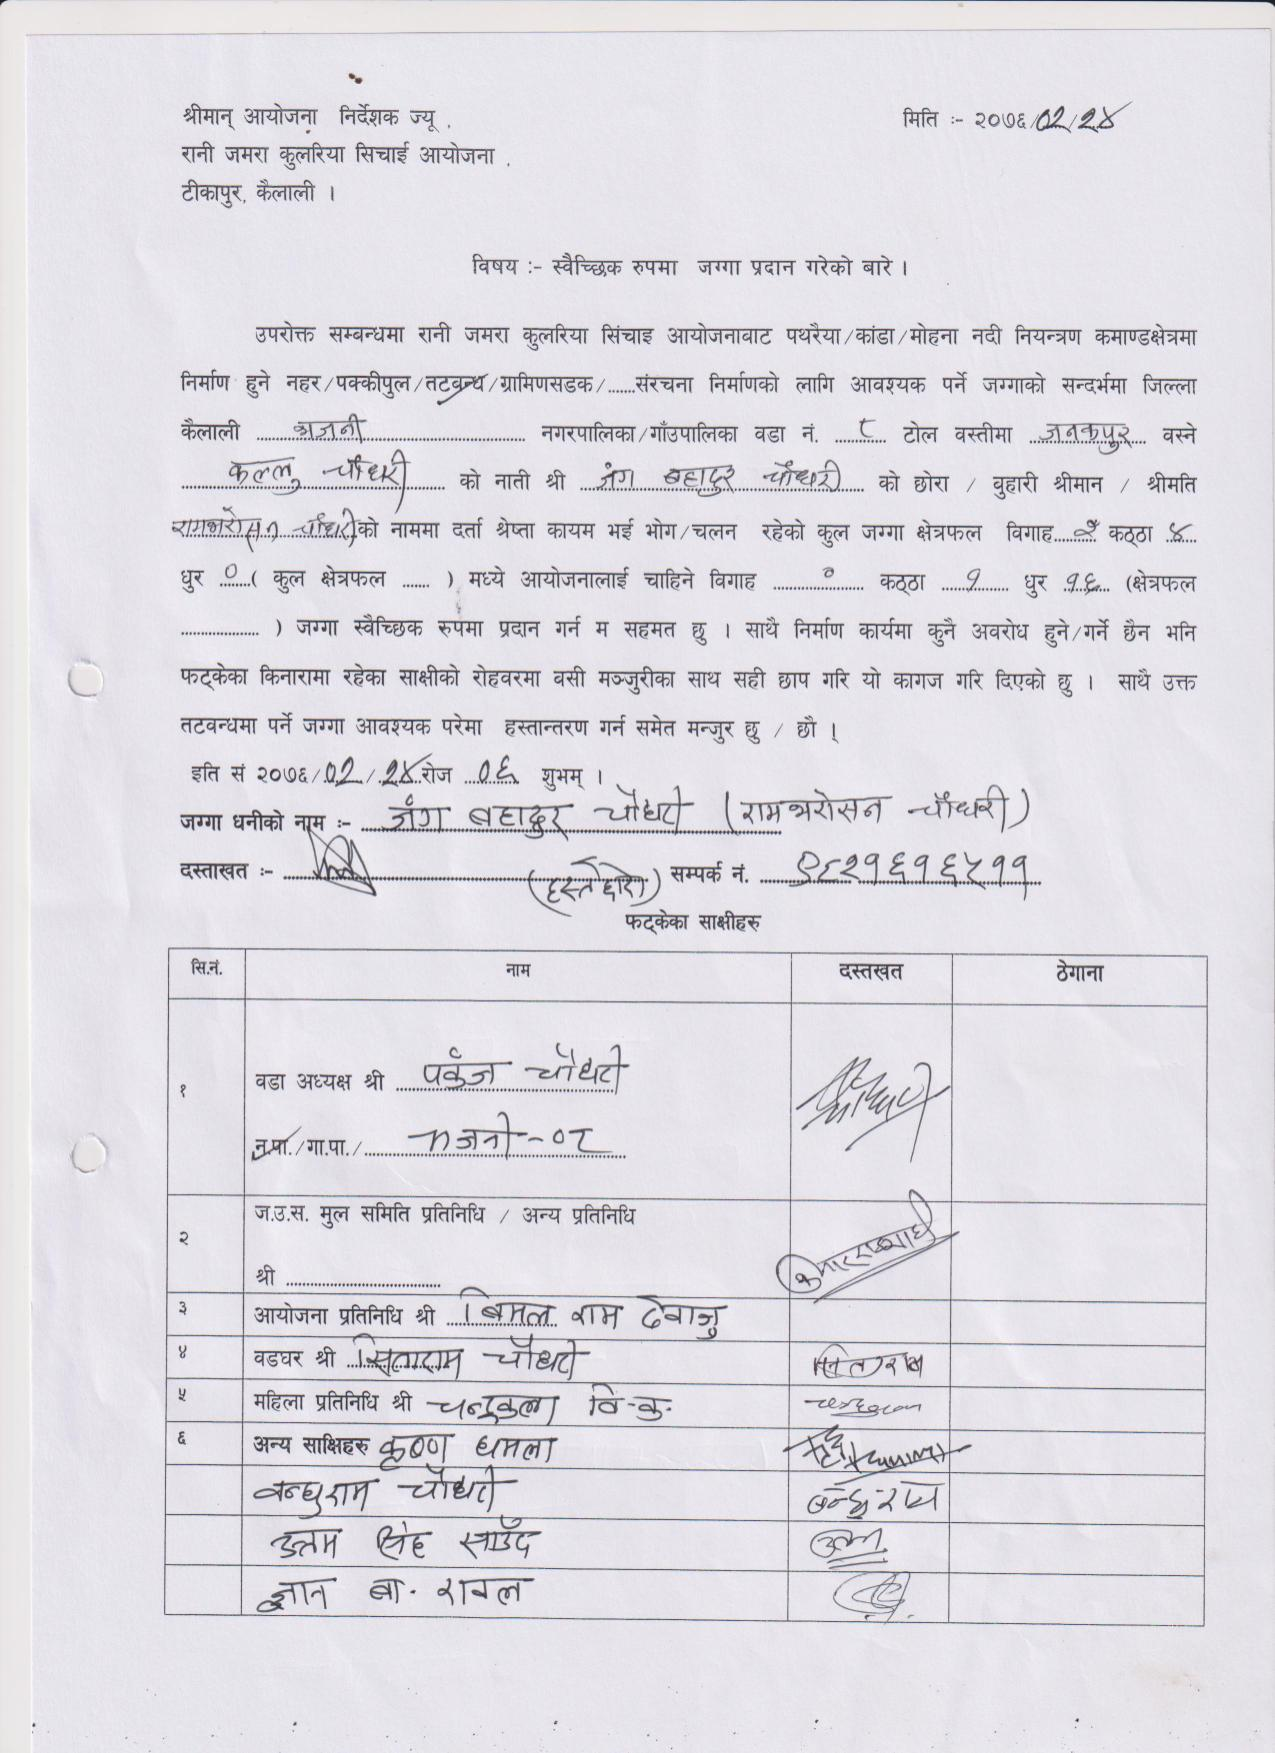 श्रीमान् आयोजना निर्देशक ज्यू , मिति :- २०७६/02/२४
रानी जमरा कुलरिया सिचाई आयोजना ,
टीकापुर, कैलाली ।
विषय :- स्वैच्छिक रुपमा जग्गा प्रदान गरेको बारे ।
उपरोक्त सम्बन्धमा रानी जमरा कुलरिया सिंचाइ आयोजनावाट पथरैया/कांडा/मोहना नदी नियन्त्रण कमाण्डक्षेत्रमा
निर्माण हुने नहर/पक्कीपुल/तटबन्ध/ग्रामिणसडक/......संरचना निर्माणको लागि आवश्यक पर्ने जग्गाको सन्दर्भमा जिल्ला
कैलाली भजनी नगरपालिका/गाँउपालिका वडा नं. ८ टोल वस्तीमा जनकपुर वस्ने
कल्लु चौधरी को नाती श्री जंग बहादुर चौधरी को छोरा / वुहारी श्रीमान / श्रीमति
रामभरोसन चौधरी को नाममा दर्ता श्रेष्ता कायम भई भोग/चलन रहेको कुल जग्गा क्षेत्रफल विगाह कठ्ठा ४
धुर ० ( कुल क्षेत्रफल ...... ) मध्ये आयोजनालाई चाहिने विगाह ० कठ्ठा १ धुर १६ (क्षेत्रफल
.................... ) जग्गा स्वैच्छिक रुपमा प्रदान गर्न म सहमत छु । साथै निर्माण कार्यमा कुनै अवरोध हुने/गर्ने छैन भनि
फट्केका किनारामा रहेका साक्षीको रोहवरमा वसी मञ्जुरीका साथ सही छाप गरि यो कागज गरि दिएको छु । साथै उक्त
तटवन्धमा पर्ने जग्गा आवश्यक परेमा हस्तान्तरण गर्न समेत मन्जुर छु / छौ ।
इति सं २०७६/02/२४ रोज ०६ शुभम् ।
जग्गा धनीको नाम :- जंग बहादुर चौधरी (रामभरोसन चौधरी)
दस्ताखत :- (हस्तेद्वारो) सम्पर्क नं. ९८२१६१६५११
फट्केका साक्षीहरु
सि.नं. नाम दस्तखत ठेगाना
१ वडा अध्यक्ष श्री पकंज चौधरी
न.पा./गा.पा./ भजनी-०८
२ ज.उ.स. मुल समिति प्रतिनिधि / अन्य प्रतिनिधि
श्री ........................................
३ आयोजना प्रतिनिधि श्री बिमल राम देवाजु
४ वडघर श्री सिताराम चौधरी सिताराम
५ महिला प्रतिनिधि श्री चन्द्रकला वि.क.
६ अन्य साक्षिहरु कृष्ण धमला
बन्धुराम चौधरी बन्धुराम
उत्तम सिंह साउँद
ज्ञान बा. रावल